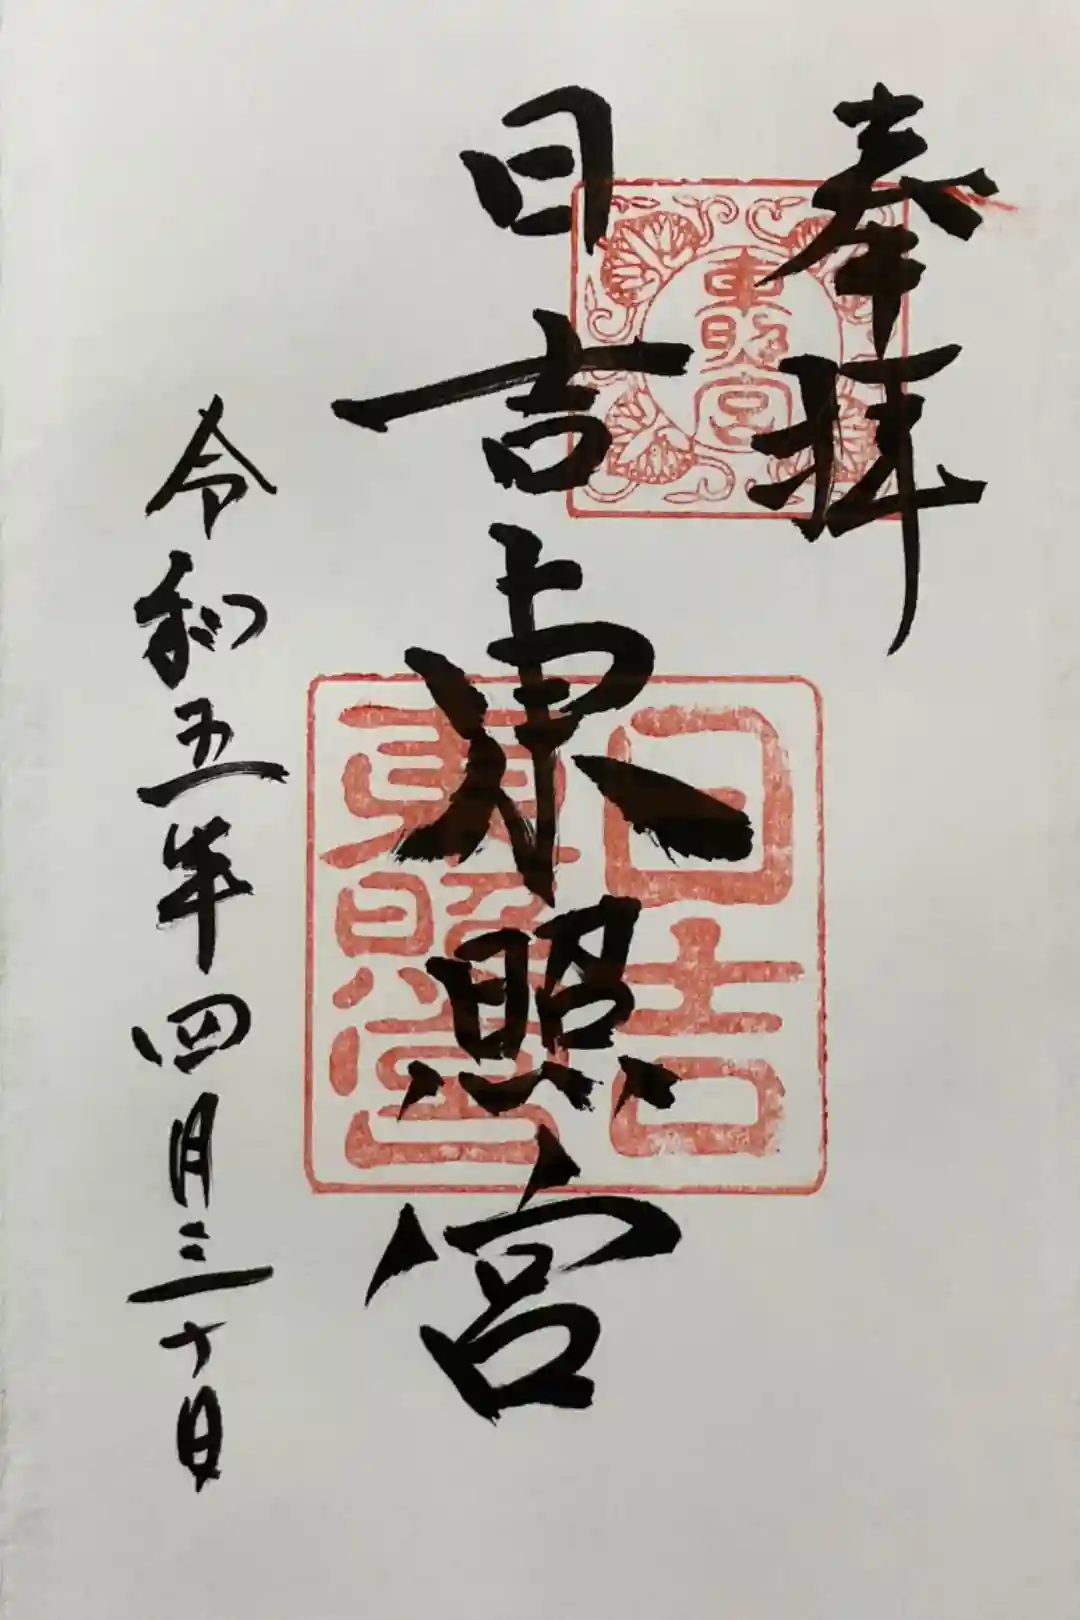 奉拝
東照宮
日吉東照宮
日吉
東照宮
令和五年四月三十日